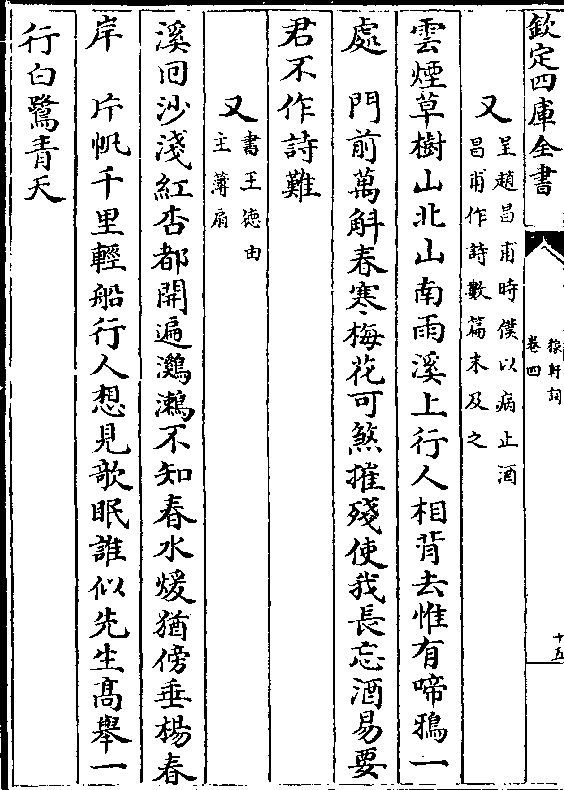 欽定四庫全書
稼軒詞
卷四
十五
又
呈趙昌甫時僕以病止酒
昌甫作詩數篇末及之
雲煙草樹山北山南雨溪上行人相背去惟有啼鴉一
處　門前萬斛春寒梅花可㬠摧殘使我長忘酒易要
君不作詩難
又
書王德由
主薄扇
溪回沙淺紅杏都開遍鸂鷘不知春水煖猶傍垂楊春
岸　片帆千里輕船行人想見歌眠誰似先生髙舉一
行白鷺青天